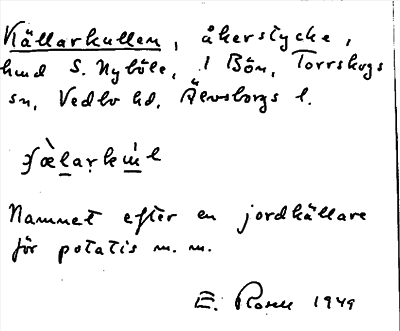 Källarkullen, åkerstycke,
hmd S. Nyböle, 1 Bön, Torrskogs
sn, Vedbo hd, Älvsborgs l.
Namnet efter en jordkällare
för potatis m. m.
E. Rosell 1949